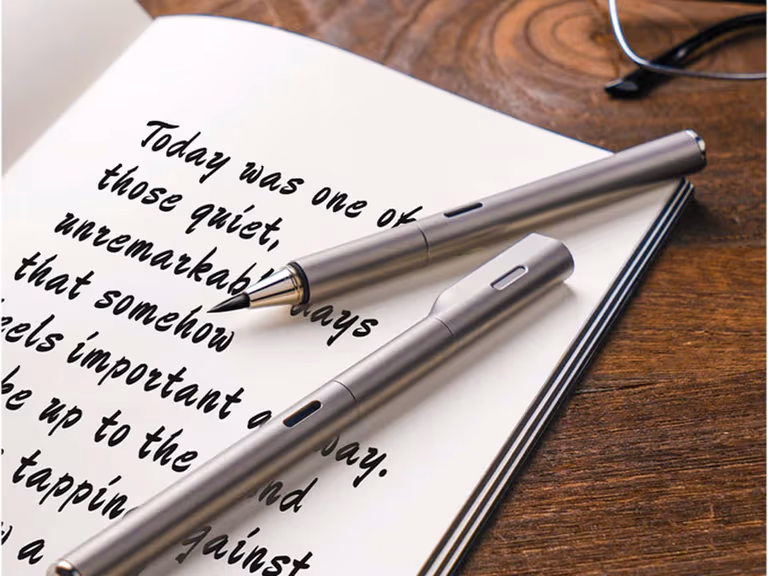 Today was one of
those quiet,
unremarkab days
that somehow
eels important a
up to the
tappin
a